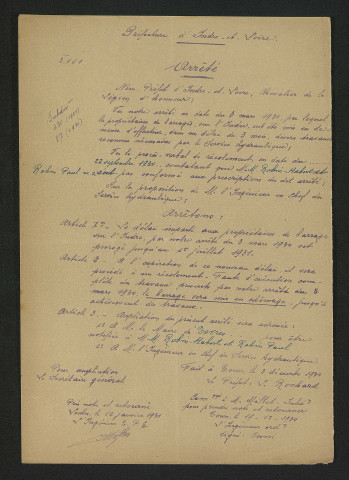 Préfecture d'Indre-et-Loire.
Arrêté
Nous, Préfet d'Indre-et-Loire, Chevalier de la
Légion d'honneur;
Vu notre arrêté en date du 3 mars 1930 par lequel
propriétaires de barrages sur l'Indre, ont été mis en de-
meure d'effectuer, dans un délai de 3 mois, divers travaux
reconnus nécessaires par le Service hydraulique;
Vu le procès-verbal de récolement, en date du
22 septembre 1930, constatant que M.M. Robin-Habert et
Robin Paul ne se sont pas conformés aux prescriptions du dit arrêté;
Sur la proposition de M. l'Ingénieur en Chef du
Service hydraulique;
Arrêtons:
Article 1er - Le délai imparti aux propriétaires de barrages
sur l'Indre, par notre arrêté du 3 mars 1930 est
prorogé jusqu'au 1er juillet 1931.
Article 2 - A l'expiration de ce nouveau délai, il sera
procédé à un récolement. Faute d'exécution com-
plète des travaux prescrits par notre arrêté du 3
mars 1930 le barrage sera mis en chômage jusqu'à
achèvement des travaux.
Article 3 - Ampliation du présent arrêté sera adressée:
1° A M. le Maire de pour être
notifiée à M.M. Robin-Habert et Robin Paul
2° A M. l'Ingénieur en Chef du Service hydraulique
Fait à Tours, le 3 décembre 1930
Le Préfet:
Pour ampliation
Le Secrétaire général
Pris note et retourné
le 12 janvier 1931
L'Ingénieur T.P.E.
pour prendre note et retourner
Tours, le 1930
L'Ingénieur
signé: